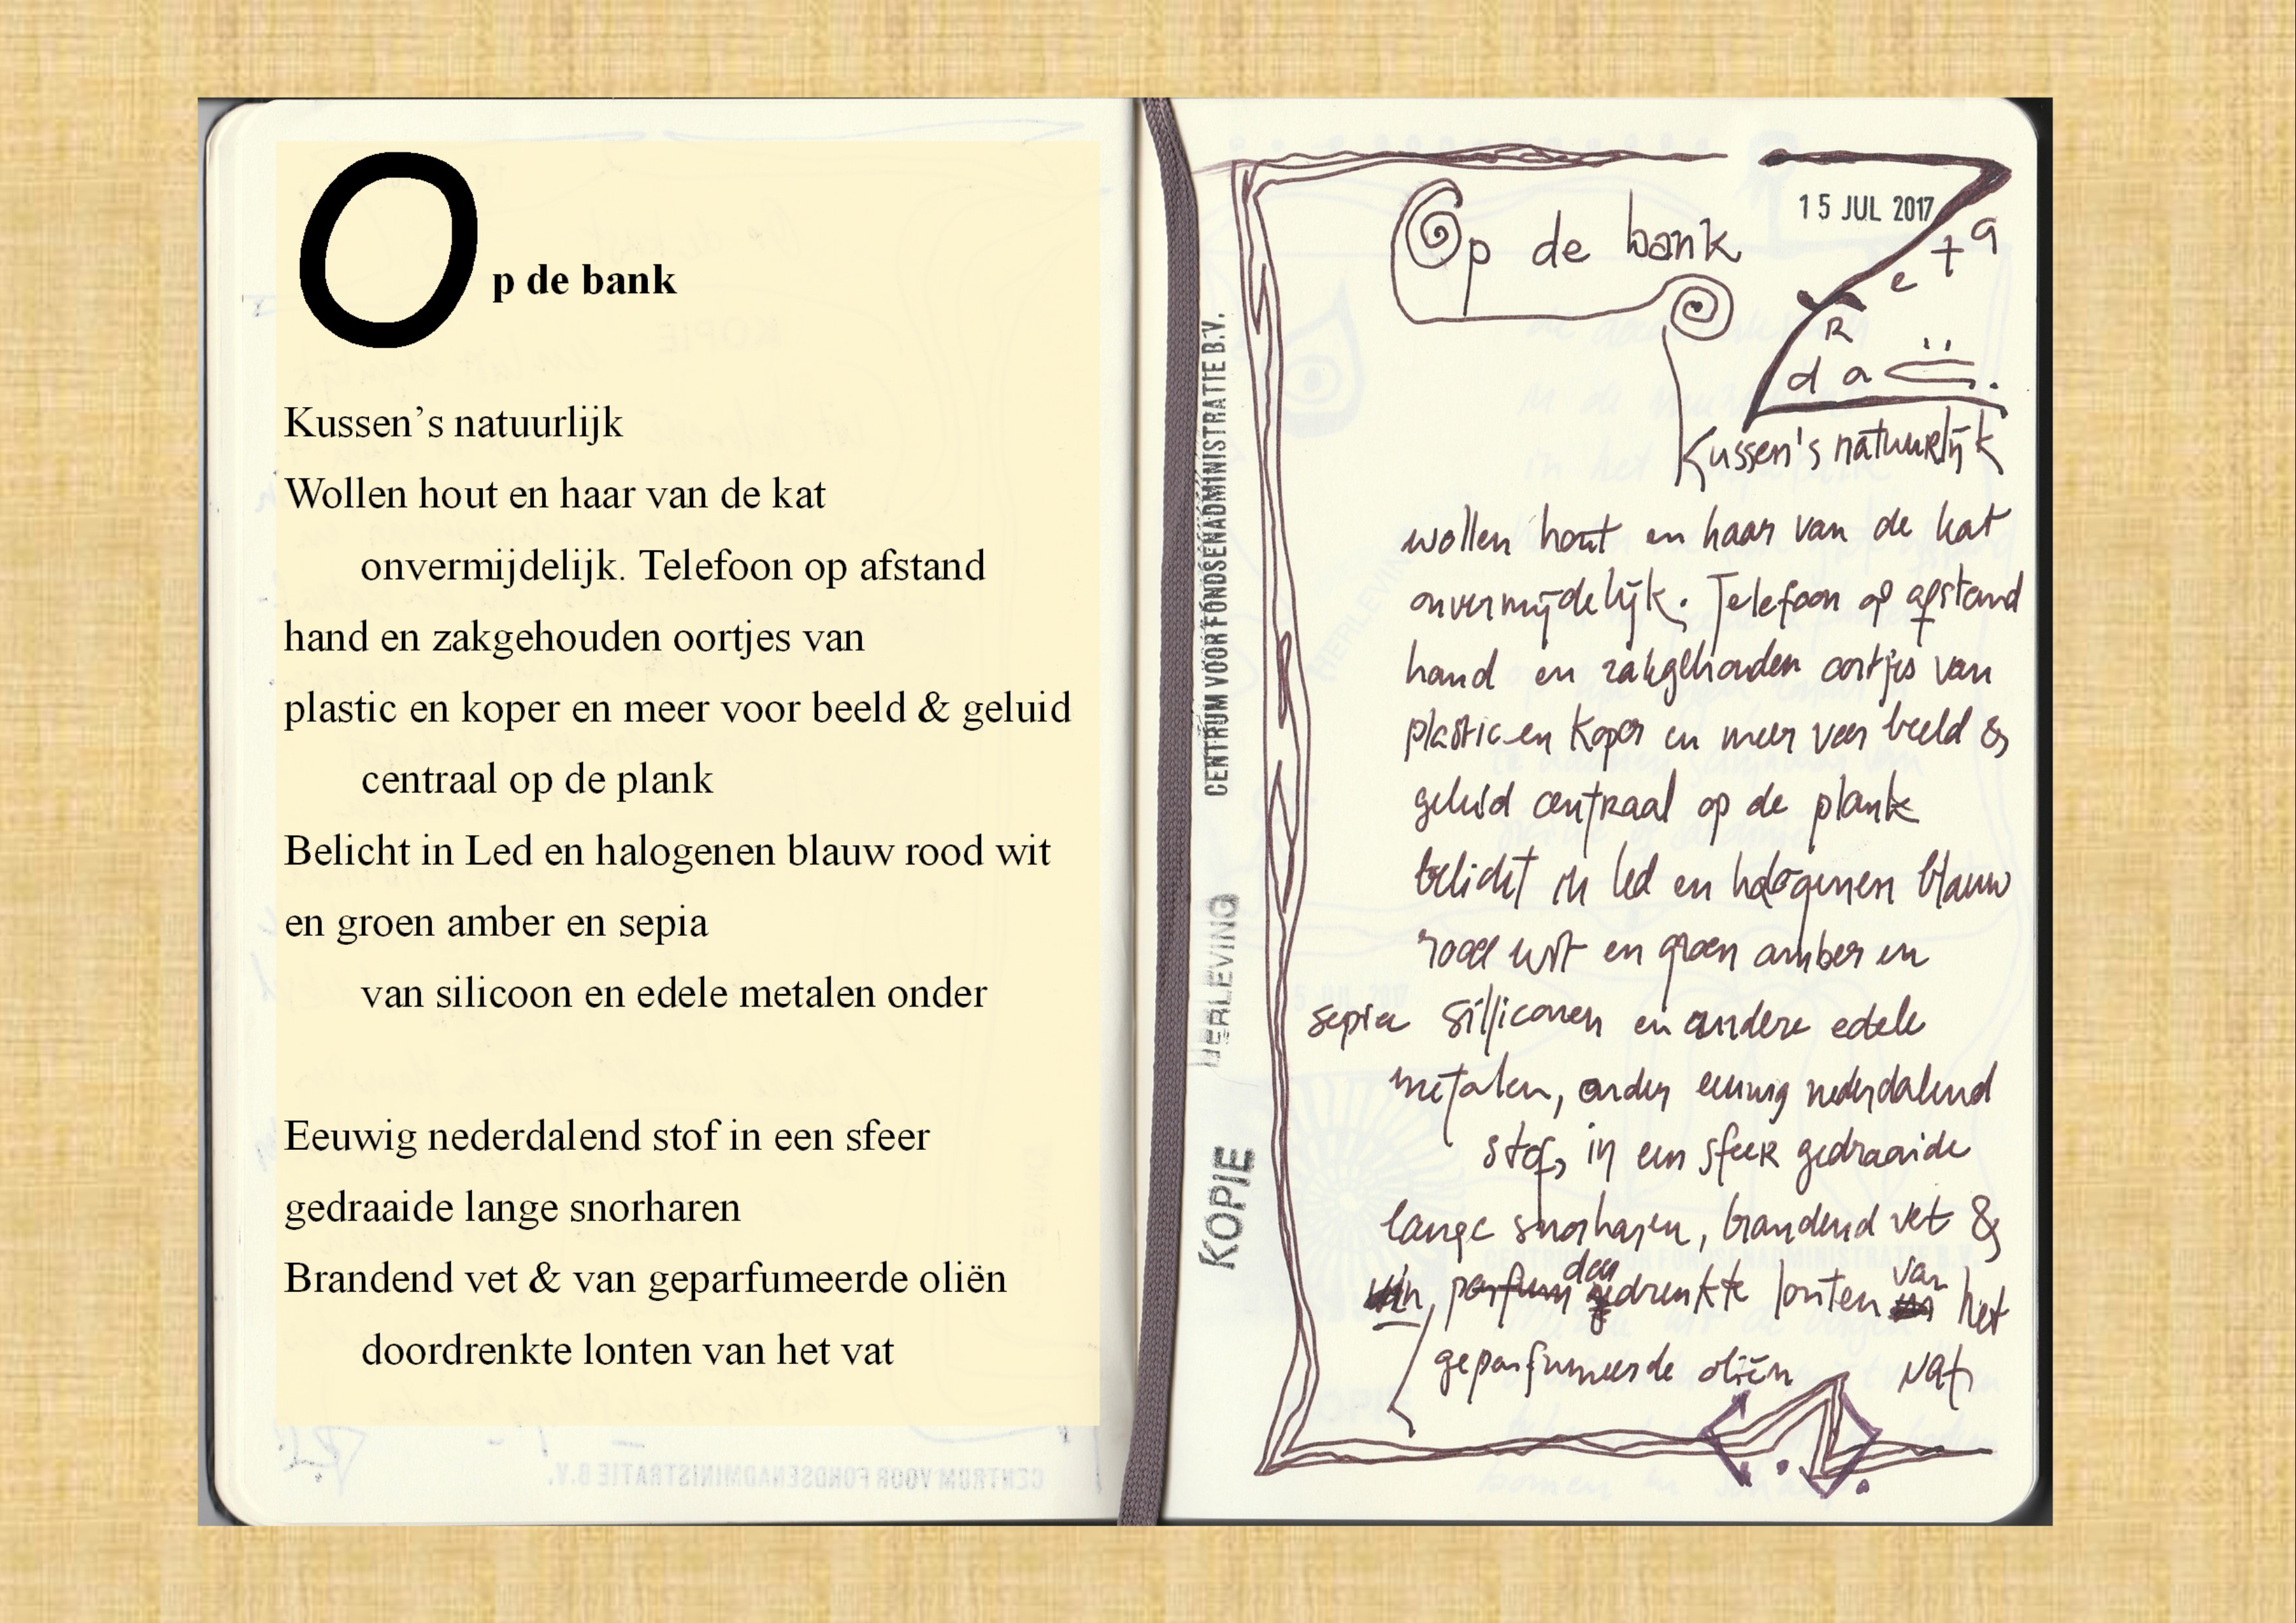 Op de bank
Kussen’s natuurlijk
Wollen hout en haar van de kat
onvermijdelijk. Telefoon op afstand
hand en zakgehouden oortjes van
plastic en koper en meer voor beeld & geluid
centraal op de plank
Belicht in Led en halogenen blauw rood wit
en groen amber en sepia
van silicoon en edele metalen onder
Eeuwig nederdalend stof in een sfeer
gedraaide lange snorharen
Brandend vet & van geparfumeerde oliën
doordrenkte lonten van het vat
CENTRUM VOOR FONDSENADMINISTRATIE B.V.
CENTRUM VOOR FONDSENADMINISTRATIE B.V.
HERLEVING
KOPIE
15 JUL 2017
Op de bank
Kussen's natuurlijk
wollen hout en haar van de kat
onvermijdelijk. Telefoon op afstand
hand en zakgehouden oortjes van
plastic en koper en meer voor beeld &
geluid centraal op de plank
belicht in led en halogenen blauw
rood wit en groen amber en
sepia silliconen en andere edele
metalen, onder eeuwig nederdalend
stof, in een sfeer gedraaide
lange snorharen, brandend vet &
parfum doordrenkte lonten van het
geparfumeerde oliën vat